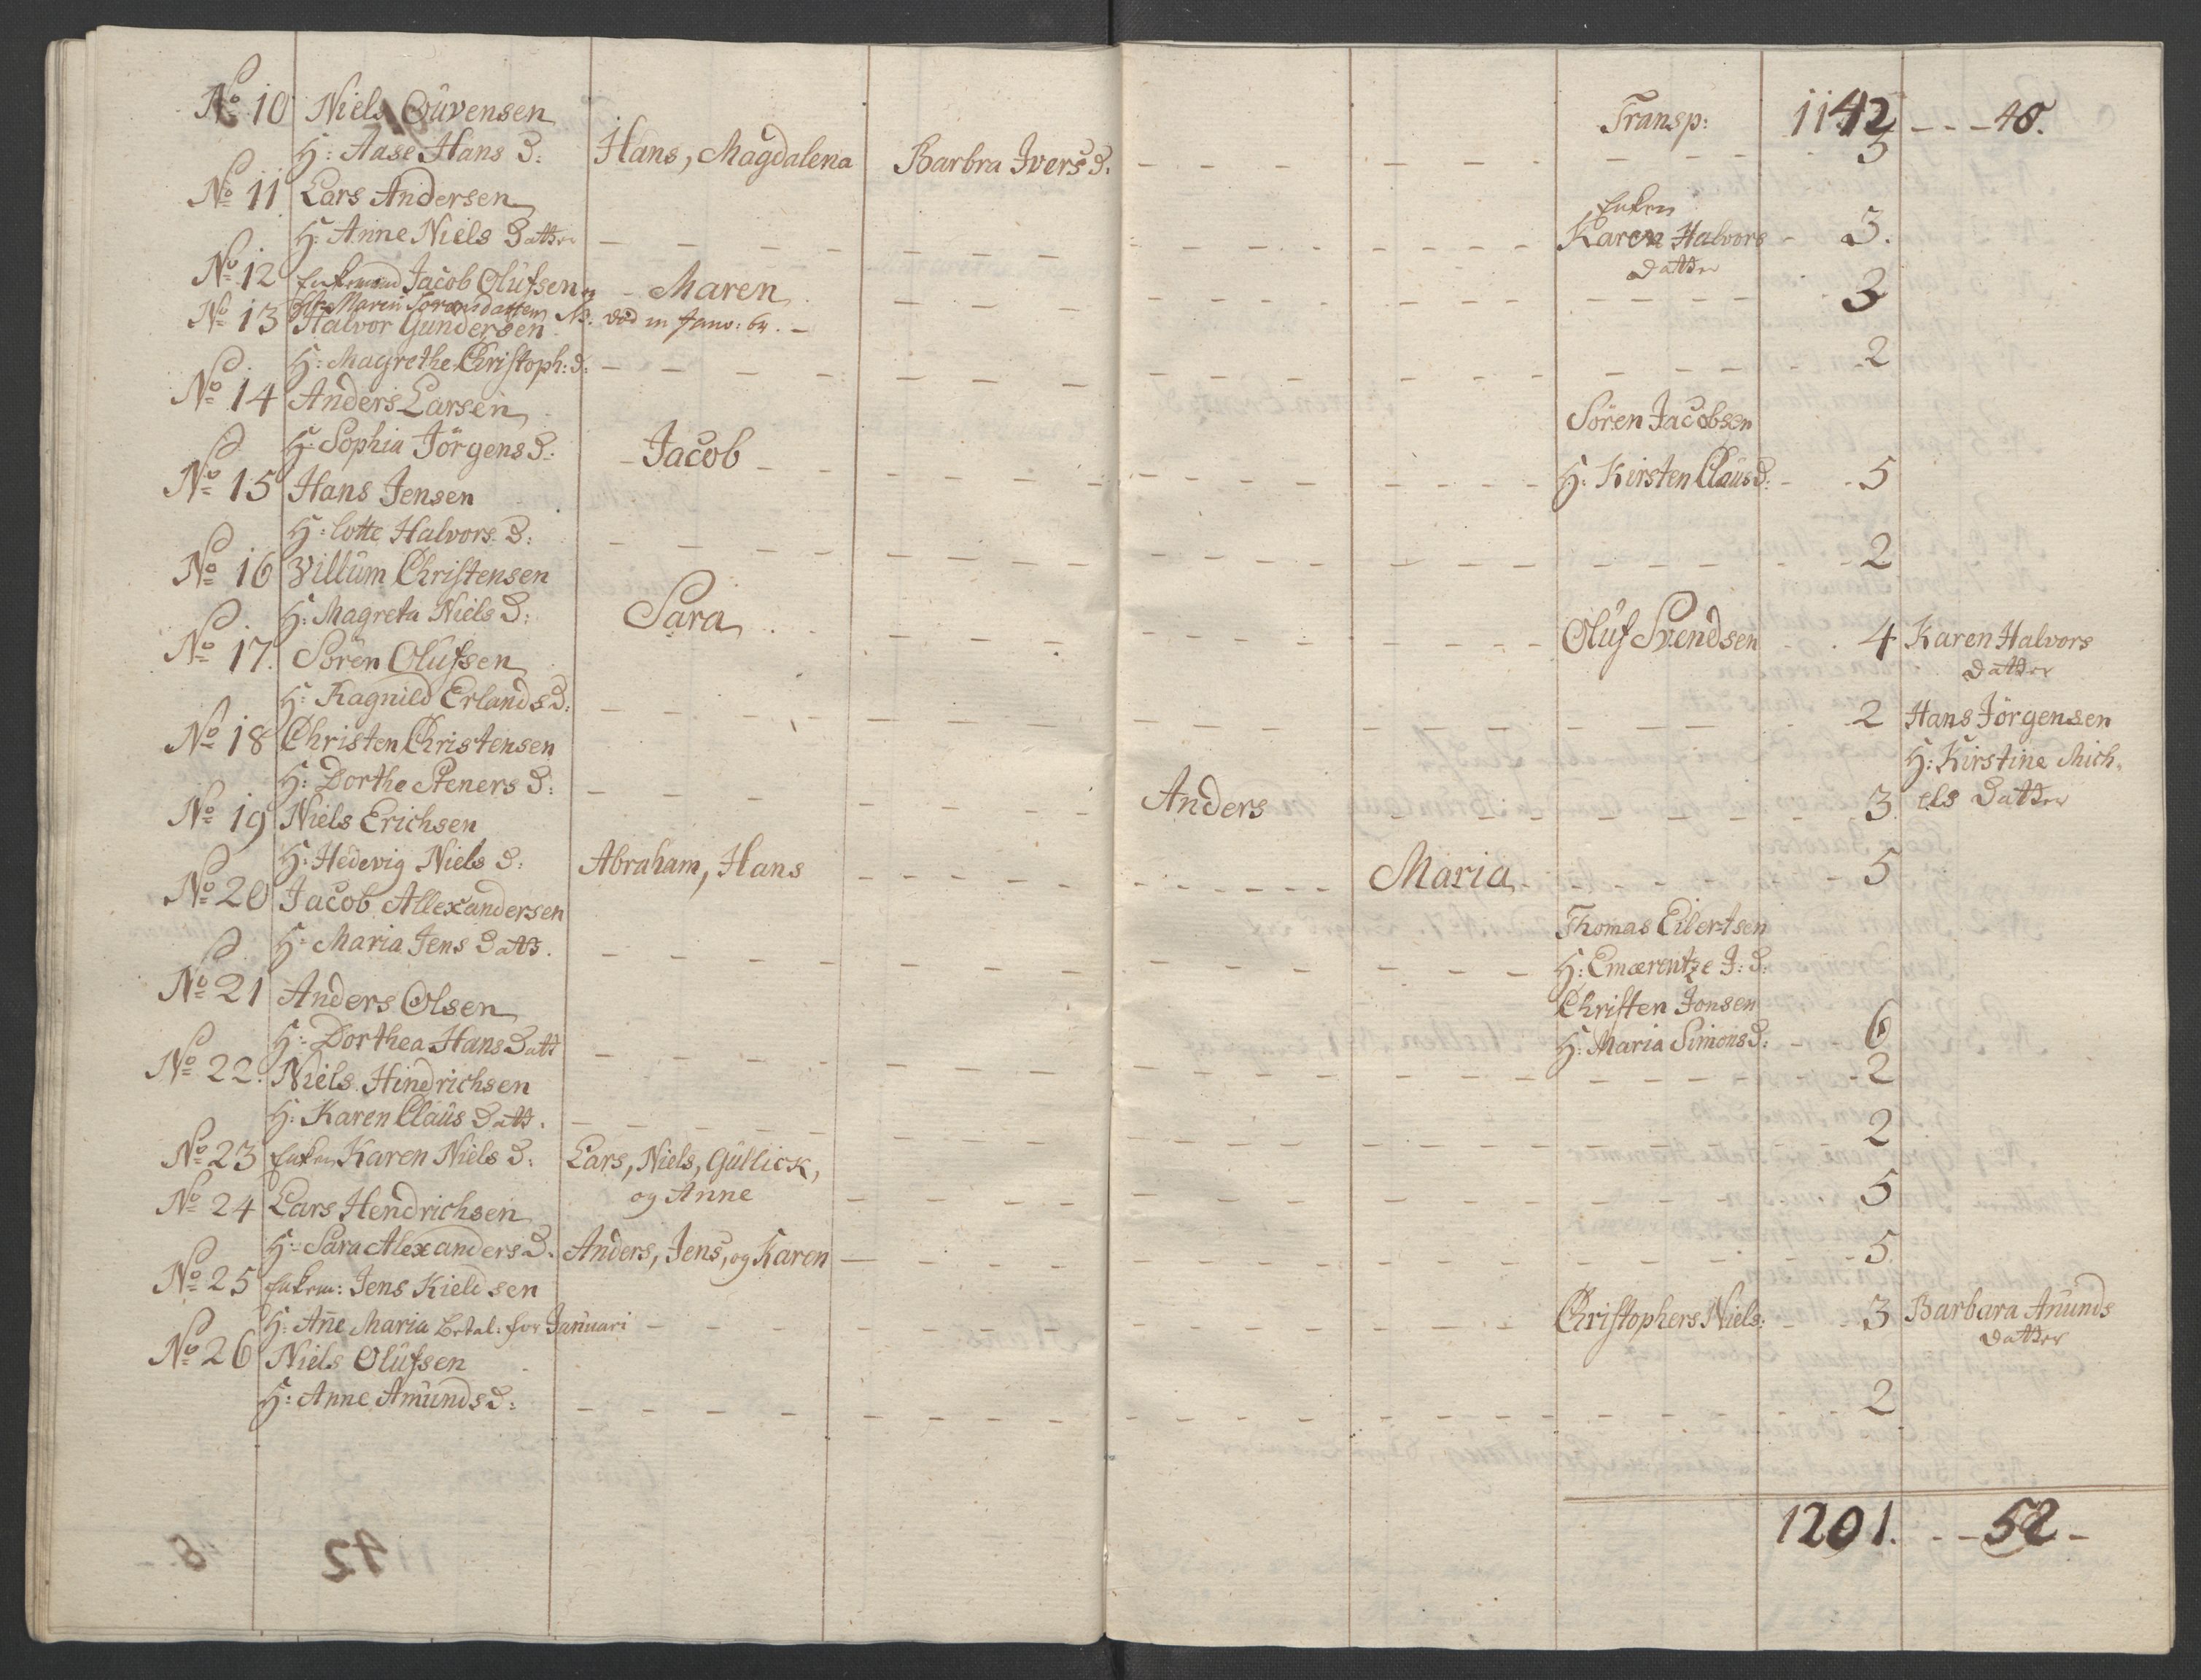 Transp: 1142 - - - 48.
No 10 Niels Ouvensen
H: Aase Hans D: Hans, Magdalena Barbra Ivers D. 5
No 11 Lars Andersen
Enken
H: Anne Niels Datter Karen Halvors 3.
Datter
No 12 Enkemand Jacob Olufsen Maren 3
No 13 Halvor Gundersen
NB. død in Janv: 64.
H: Magrethe Christoph: d: 2
No 14 Anders Larsen
Sören Jacobsen
H: Sophia Jörgens D: Jacob H: Kirsten Claus D: 5
No 15 Hans Jensen
H: Lotte Halvors D: 2
No 16 Villum Christensen
H: Magreta Niels D: Sara Oluf Svendsen 4 Karen Halvors
Datter
No 17. Sören Olufsen
H: Ragnild Erlands D: 2 Hans Jörgensen
No 18 Christen Christensen
H: Kirstine Mich
H: Dorthe Steners D: Anders 3. els Datter
No 19 Niels Erichsen
H: Hedevig Niels D: Abraham, Hans Maria 5
No 20 Jacob Allexandersen
Thomas Eilertsen
H: Maria Jens Datt. H: Emærentze J: D:
Christen Jonsen
H: Maria Simons D: 6
No 21 Anders Olsen
H: Dorthea Hans Datt 2
No 22. Niels Hindrichsen
H: Karen Claus Datt. 2
No 23 Enken Karen Niels D: Lars, Niels, Gullick,
og Anne 5
No 24 Lars Hendrichsen
H: Sara Alexanders D. Anders, Jens, og Karen 5
No 25 Enkem: Jens Kieldsen
H: Ane Maria Betal: for Januari Christophers Niels: 3 Barbara Amunds
Datter
No 26 Niels Olufsen
H: Anne Amunds D: 2
1201. - - 52 -